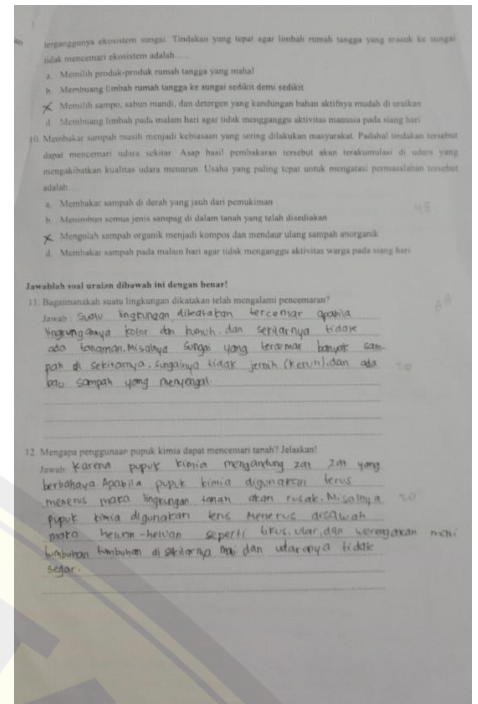 terganggunya ekosistem sungai. Tindakan yang tepat agar limbah rumah tangga yang masuk ke sungai
tidak mencemari ekosistem adalah....
a. Memilih produk-produk rumah tangga yang mahal
b. Membuang limbah rumah tangga ke sungai sedikit demi sedikit
Memilih sampo, sabun mandi, dan detergen yang kandungan bahan aktifnya mudah di uraikan
d. Membuang limbah pada malam hari agar tidak mengganggu aktivitas manusia pada siang hari
10. Membakar sampah masih menjadi kebiasaan yang sering dilakukan masyarakat. Padahal tindakan tersebut
dapat mencemari udara sekitar. Asap hasil pembakaran tersebut akan terakumulasi di udara yang
mengakibatkan kualitas udara menurun. Usaha yang paling tepat untuk mengatasi permasalahan tersebut
adalah....
a. Membakar sampah di derah yang jauh dari pemukiman
48
b. Menimbun semua jenis sampag di dalam tanah yang telah disediakan
Mengolah sampah organik menjadi kompos dan mendaur ulang sampah anorganik
d. Membakar sampah pada malam hari agar tidak menganggu aktivitas warga pada siang hari
Jawablah soal uraian dibawah ini dengan benar!
11. Bagaimanakah suatu lingkungan dikatakan telah mengalami pencemaran?
Jawab: Suatu lingkungan dikatakan tercemar apabila
lingkungannya kotor dan kumuh. dan sekitarnya tidak
ada tanaman. Misalnya sungai yang tercemar banyak sam-
pah di sekitarnya, sungainya tidak jernih (keruh), dan ada
bau sampah yang menyengat.
12. Mengapa penggunaan pupuk kimia dapat mencemari tanah? Jelaskan!
Jawab: Karena pupuk kimia mengandung zat zat yang
berbahaya. Apabila pupuk kimia digunakan terus
menerus maka lingkungan tanah akan rusak. Misalnya
pupuk kimia digunakan terus menerus disawah
maka hewan-hewan seperti tikus, ular, dan
tumbuhan tumbuhan di sekitarnya dan udaranya tidak
segar.